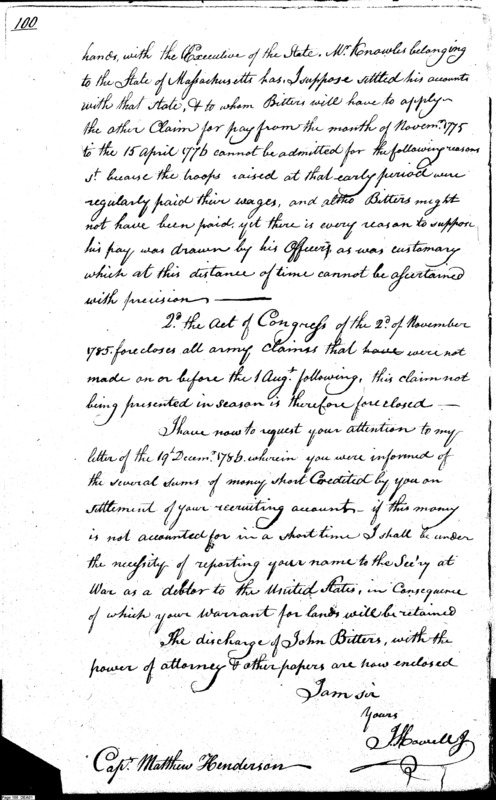 100
hands, with the Executive of the State. Mr. Knowles belonging
to the State of Massachusetts has, I suppose settled his accounts
with that State, & to whom Bitters will have to apply—
the other Claim for pay from the month of Novemr. 1775
to the 15 April 1776 cannot be admitted for the following reasons
1st. because the troops raised at that early period were
regularly paid their wages, and altho Bitters might
not have been paid. yet there is every reason to suppose
his pay was drawn by his Officers, as was customary
which at this distance of time cannot be ascertained
with precision ——
2d. the Act of Congress of the 2d. of November
1785. forecloses all army claims that have were not
made on or before the 1 Augt. following, this claim not
being presented in season is therefore foreclosed —
I have now to request your attention to my
letter of the 19th Decemr. 1786. wherein you were informed of
the several sums of money short Credited by you on
settlement of your recruiting account — if this money
is not accounted for in a short time I shall be under
the necessity of reporting your name to the Sec'ry at
War as a debtor to the United States, in Consequence
of which your Warrant for lands will be retained
The discharge of John Bitters, with the
power of attorney & other papers are now enclosed
I am sir
Yours
J Howell Jr
Capt. Matthew Henderson